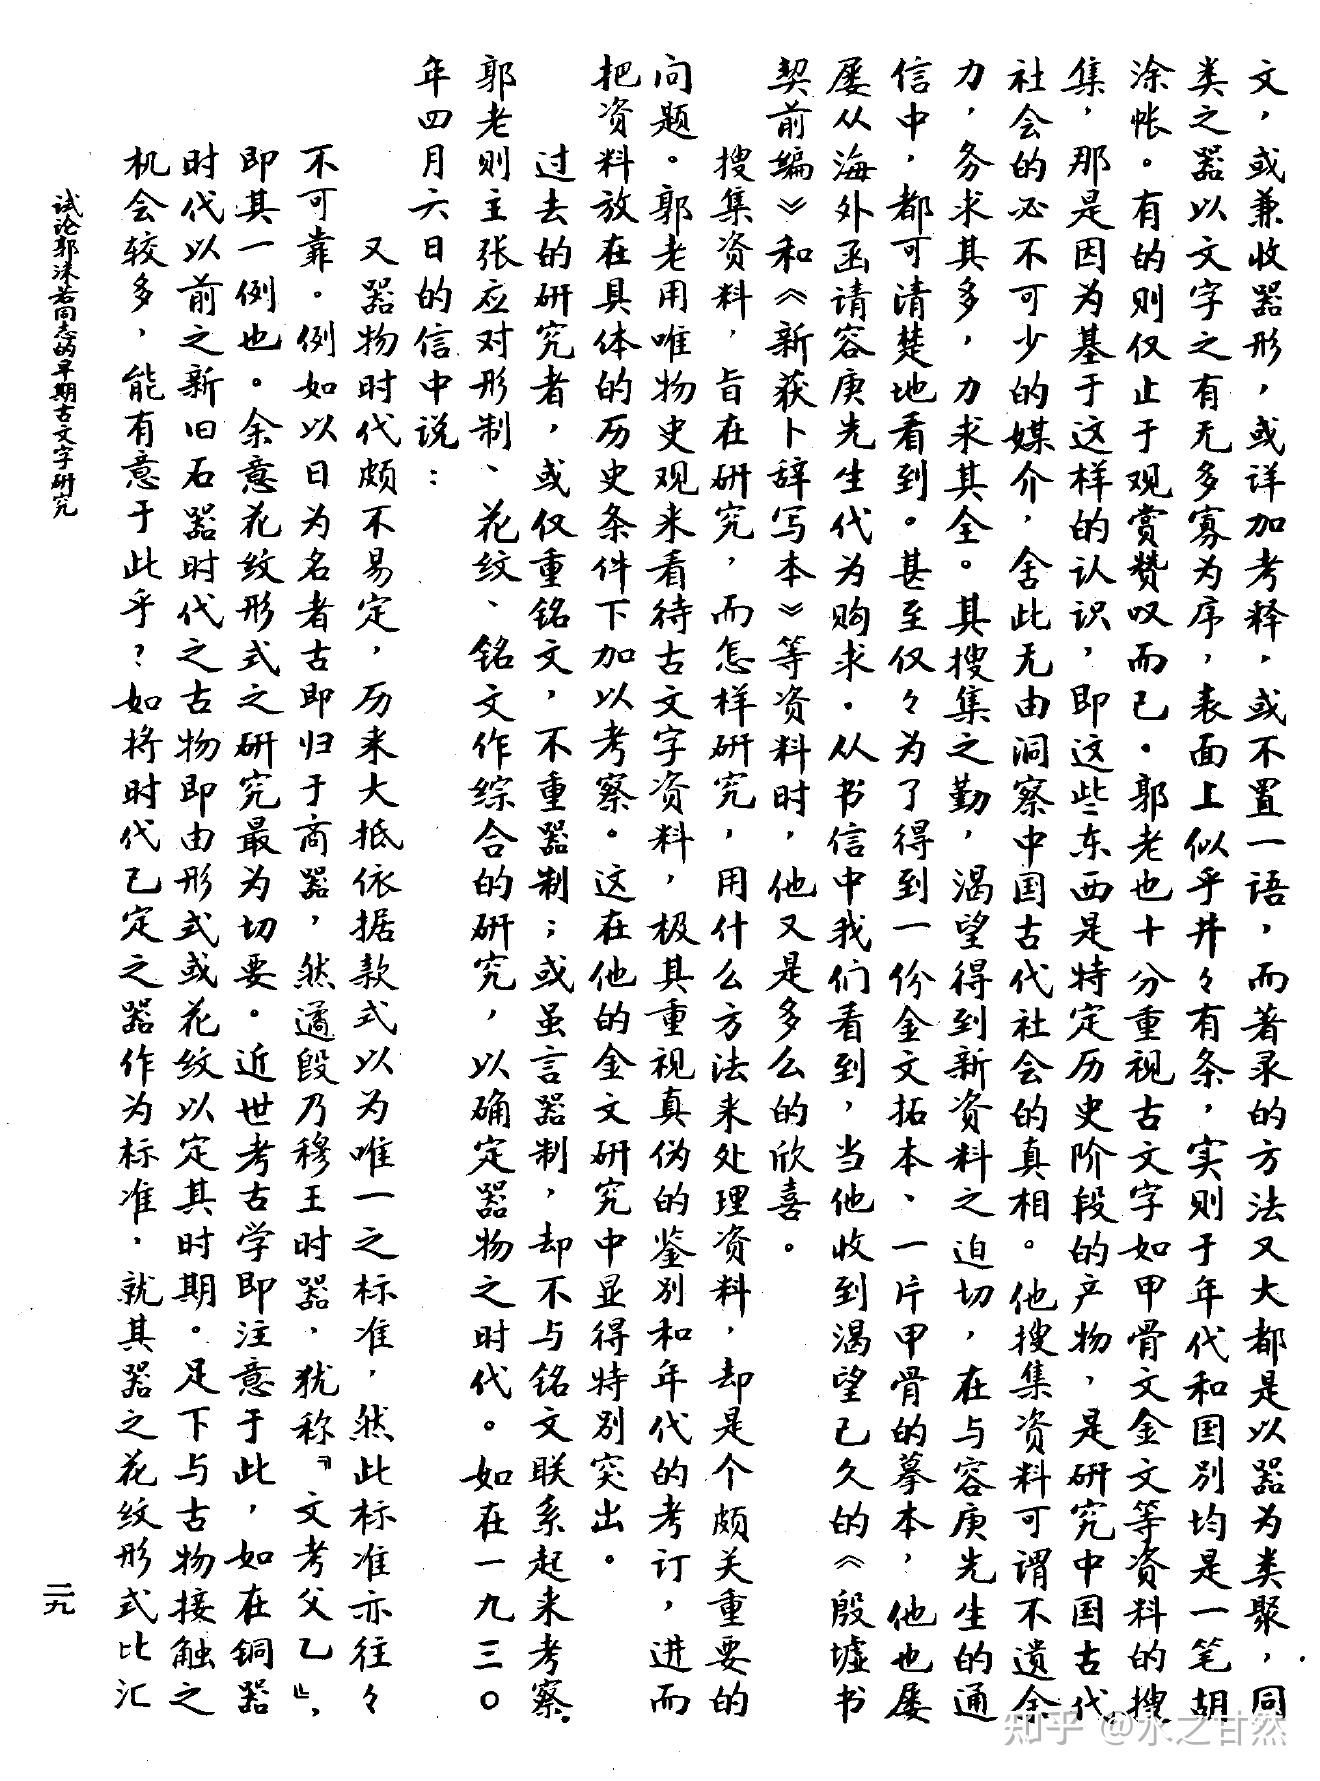 文，或兼收器形，或详加考释，或不置一语，而著录的方法又大都是以器为类聚，同
类之器以文字之有无多寡为序，表面上似乎井々有条，实则于年代和国别均是一笔胡
涂帐。有的则仅止于观赏赞叹而已。郭老也十分重视古文字如甲骨文金文等资料的搜
集，那是因为基于这样的认识，即这些东西是特定历史阶段的产物，是研究中国古代
社会的必不可少的媒介，舍此无由洞察中国古代社会的真相。他搜集资料可谓不遗余
力，务求其多，力求其全。其搜集之勤，渴望得到新资料之迫切，在与容庚先生的通
信中，都可清楚地看到。甚至仅々为了得到一份金文拓本、一片甲骨的摹本，他也屡
屡从海外函请容庚先生代为购求。从书信中我们看到，当他收到渴望已久的《殷墟书
契前编》和《新获卜辞写本》等资料时，他又是多么的欣喜。
搜集资料，旨在研究，而怎样研究，用什么方法来处理资料，却是个颇关重要的
问题。郭老用唯物史观来看待古文字资料，极其重视真伪的鉴别和年代的考订，进而
把资料放在具体的历史条件下加以考察。这在他的金文研究中显得特别突出。
过去的研究者，或仅重铭文，不重器制；或虽言器制，却不与铭文联系起来考察。
郭老则主张应对形制、花纹、铭文作综合的研究，以确定器物之时代。如在一九三〇
年四月六日的信中说：
又器物时代颇不易定，历来大抵依据款式以为唯一之标准，然此标准亦往々
不可靠。例如以日为名者古即归于商器，然遹𣪘乃穆王时器，犹称『文考父乙』，
即其一例也。余意花纹形式之研究最为切要。近世考古学即注意于此，如在铜器
时代以前之新旧石器时代之古物即由形式或花纹以定其时期。足下与古物接触之
机会较多，能有意于此乎？如将时代已定之器作为标准，就其器之花纹形式比汇
试论郭沫若同志的早期古文字研究
二九
知乎 @水之甘然